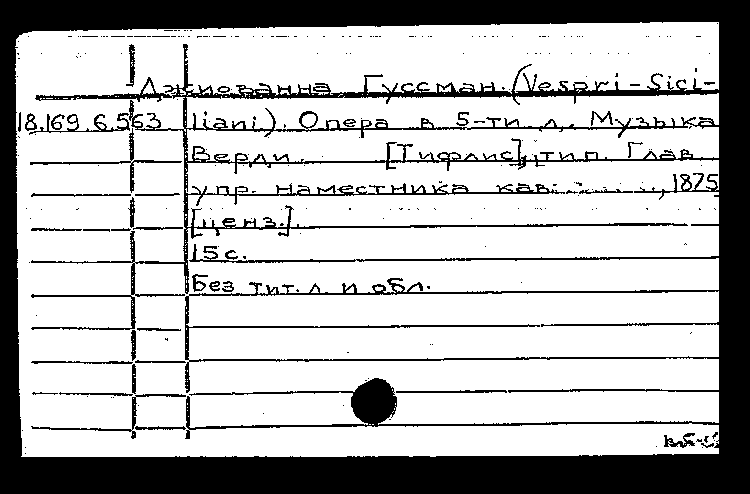 Джиованна Гуссман. (Vespri-Sici-
18.169.6.563 liani). Опера в 5-ти л. Музыка
Верди. [Тифлис], тип. Глав.
упр. наместника кав., 1875
[ценз.].
15 с.
Без тит. л. и обл.